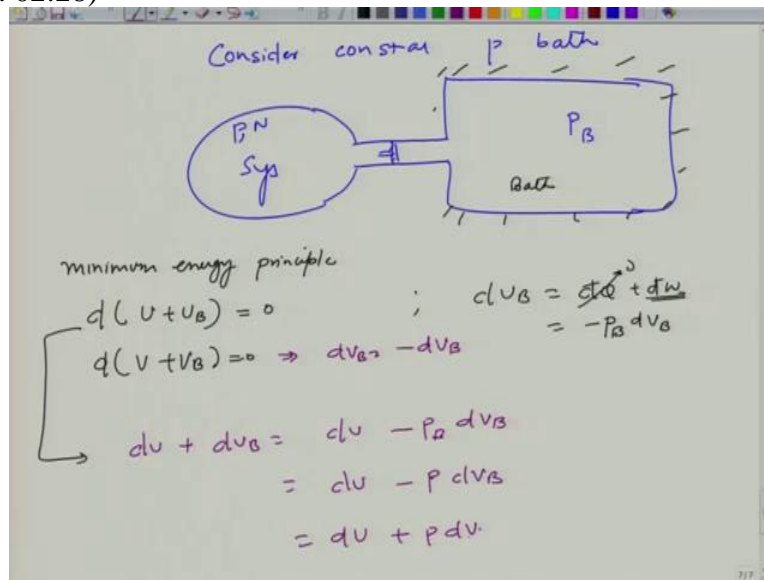 02:28)
Consider constar P bath
P,N
Sys
P_B
Bath
minimum energy principle
d(U+U_B) = 0 ; dU_B = đQ^0 + đW
= -P_B dV_B
d(V+V_B)=0 ⇒ dV_B= -dV_B
dU + dU_B = dU - P_B dV_B
= dU - P dV_B
= dU + P dV.
7/7